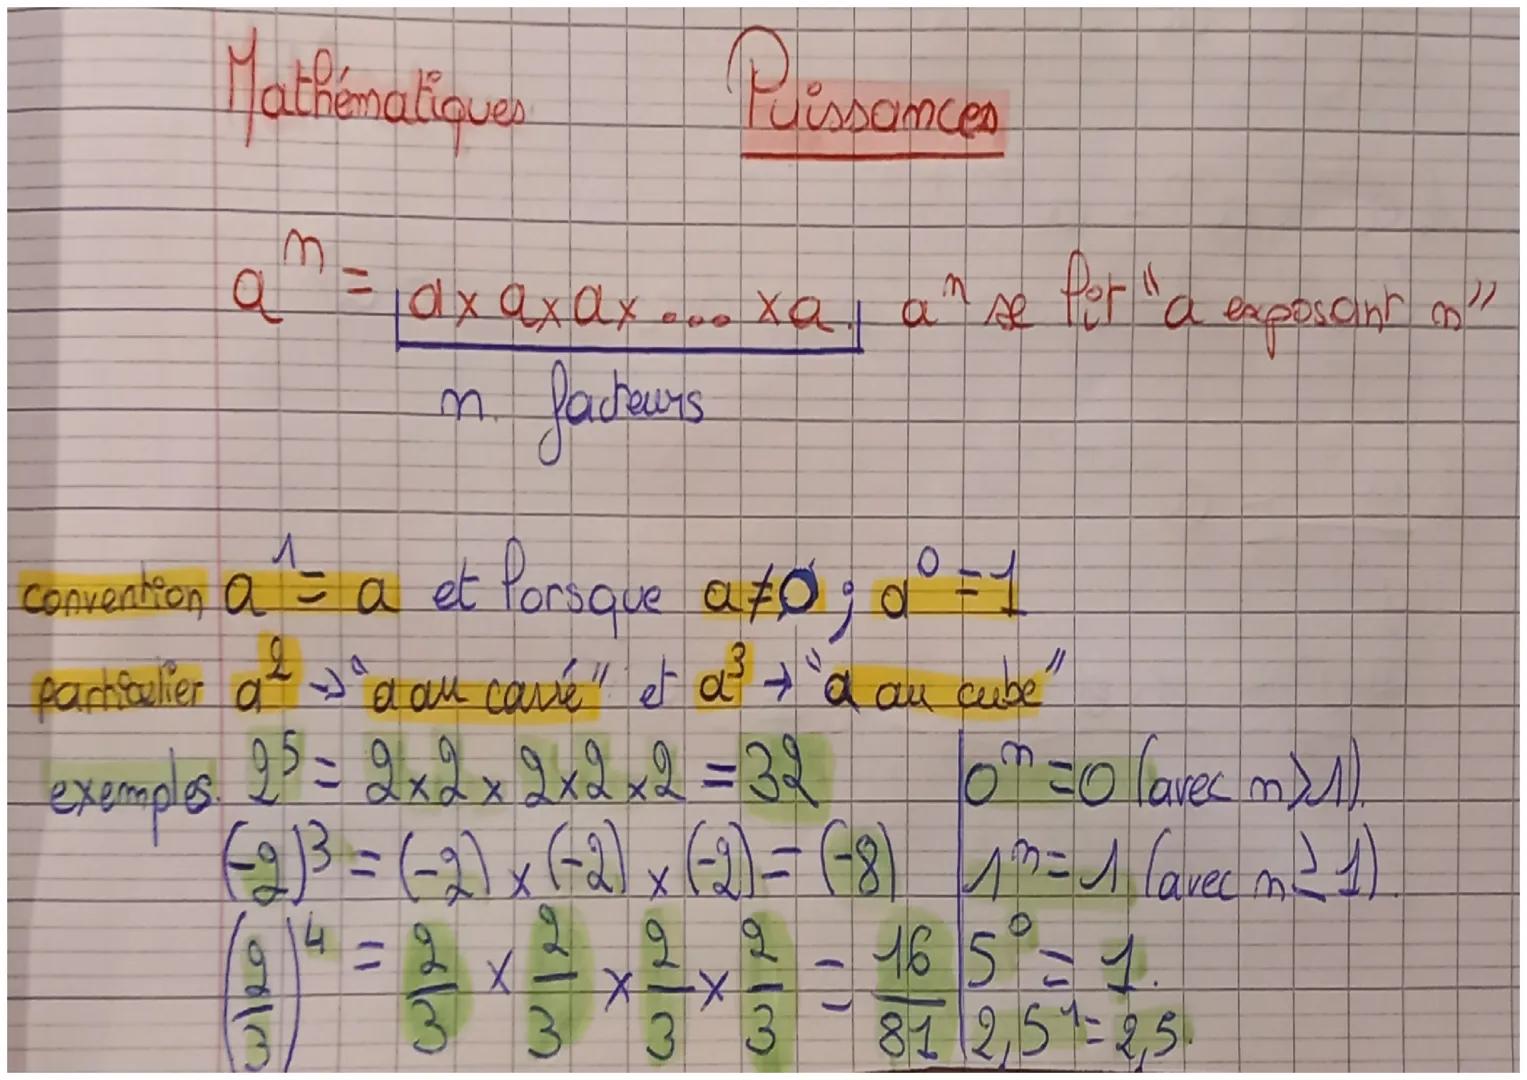 Mathématiques Puissances
aⁿ = a x a x a x .... x a. aⁿ se lit "a exposant n"
n. facteurs
convention a¹ = a et lorsque a ≠ 0 ; a⁰ = 1
particulier a² → "a au carré" et a³ → "a au cube"
exemples. 2⁵ = 2 x 2 x 2 x 2 x 2 = 32
(-2)³ = (-2) x (-2) x (-2) = (-8)
(2/3)⁴ = 2/3 x 2/3 x 2/3 x 2/3 = 16/81
0ⁿ = 0 (avec n ⩾ 1).
1ⁿ = 1 (avec n ≥ 1).
5⁰ = 1.
2,5¹ = 2,5.